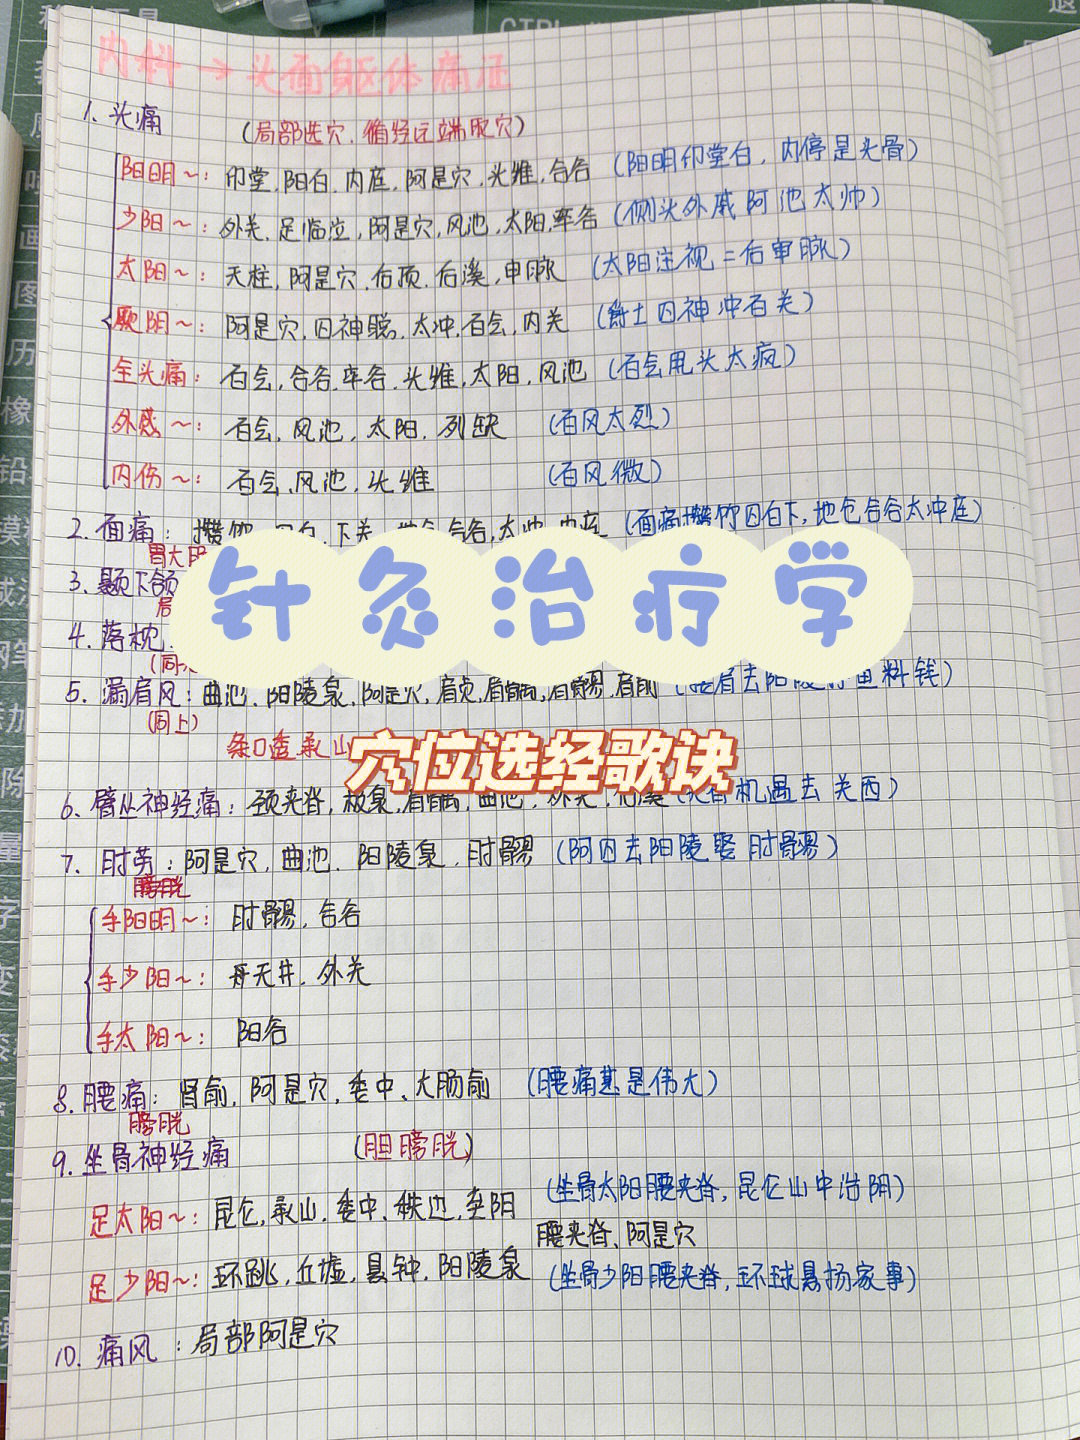 内科→头面躯体痛证
1. 头痛 (局部选穴、循经远端取穴)
阳明~: 印堂, 阳白, 内庭, 阿是穴, 头维, 合谷 (阳明印堂白, 内停是头骨)
少阳~: 外关, 足临泣, 阿是穴, 风池, 太阳, 率谷 (侧头外戚阿池太帅)
太阳~: 天柱, 阿是穴, 后顶, 后溪, 申脉 (太阳注视二后审脉)
厥阴~: 阿是穴, 四神聪, 太冲, 百会, 内关 (爵士四神冲百关)
全头痛: 百会, 合谷, 率谷, 头维, 太阳, 风池 (百会甩头太疯)
外感~: 百会, 风池, 太阳, 列缺 (百风太烈)
内伤~: 百会, 风池, 头维 (百风微)
2. 面痛: 攒竹, 四白, 下关, 地仓, 合谷, 太冲, 内庭 (面痛攒竹四白下, 地仓合谷太冲庭)
胃大
3. 颞下颌
局
4. 落枕
(同
针灸治疗学
5. 漏肩风: 曲池, 阳陵泉, 阿是穴, 肩贞, 肩髃, 肩前
(同上)
条口透承山
穴位选经歌诀
6. 臂丛神经痛: 颈夹脊, 极泉, 肩髃, 曲池, 外关, 后溪 机遇去关西)
7. 肘劳: 阿是穴, 曲池, 阳陵泉, 肘髎 (阿四去阳陵 肘髎)
膀胱
手阳明~: 肘髎, 合谷
手少阳~: 天井, 外关
手太阳~: 阳谷
8. 腰痛: 肾俞, 阿是穴, 委中, 大肠俞 (腰痛甚是伟大)
膀胱
9. 坐骨神经痛 (胆膀胱)
足太阳~: 昆仑, 承山, 委中, 秩边, 至阴 (坐骨太阳腰夹脊, 昆仑山中治阴)
腰夹脊、阿是穴
足少阳~: 环跳, 丘墟, 悬钟, 阳陵泉 (坐骨少阳腰夹脊, 环球悬扬家事)
10. 痛风: 局部阿是穴